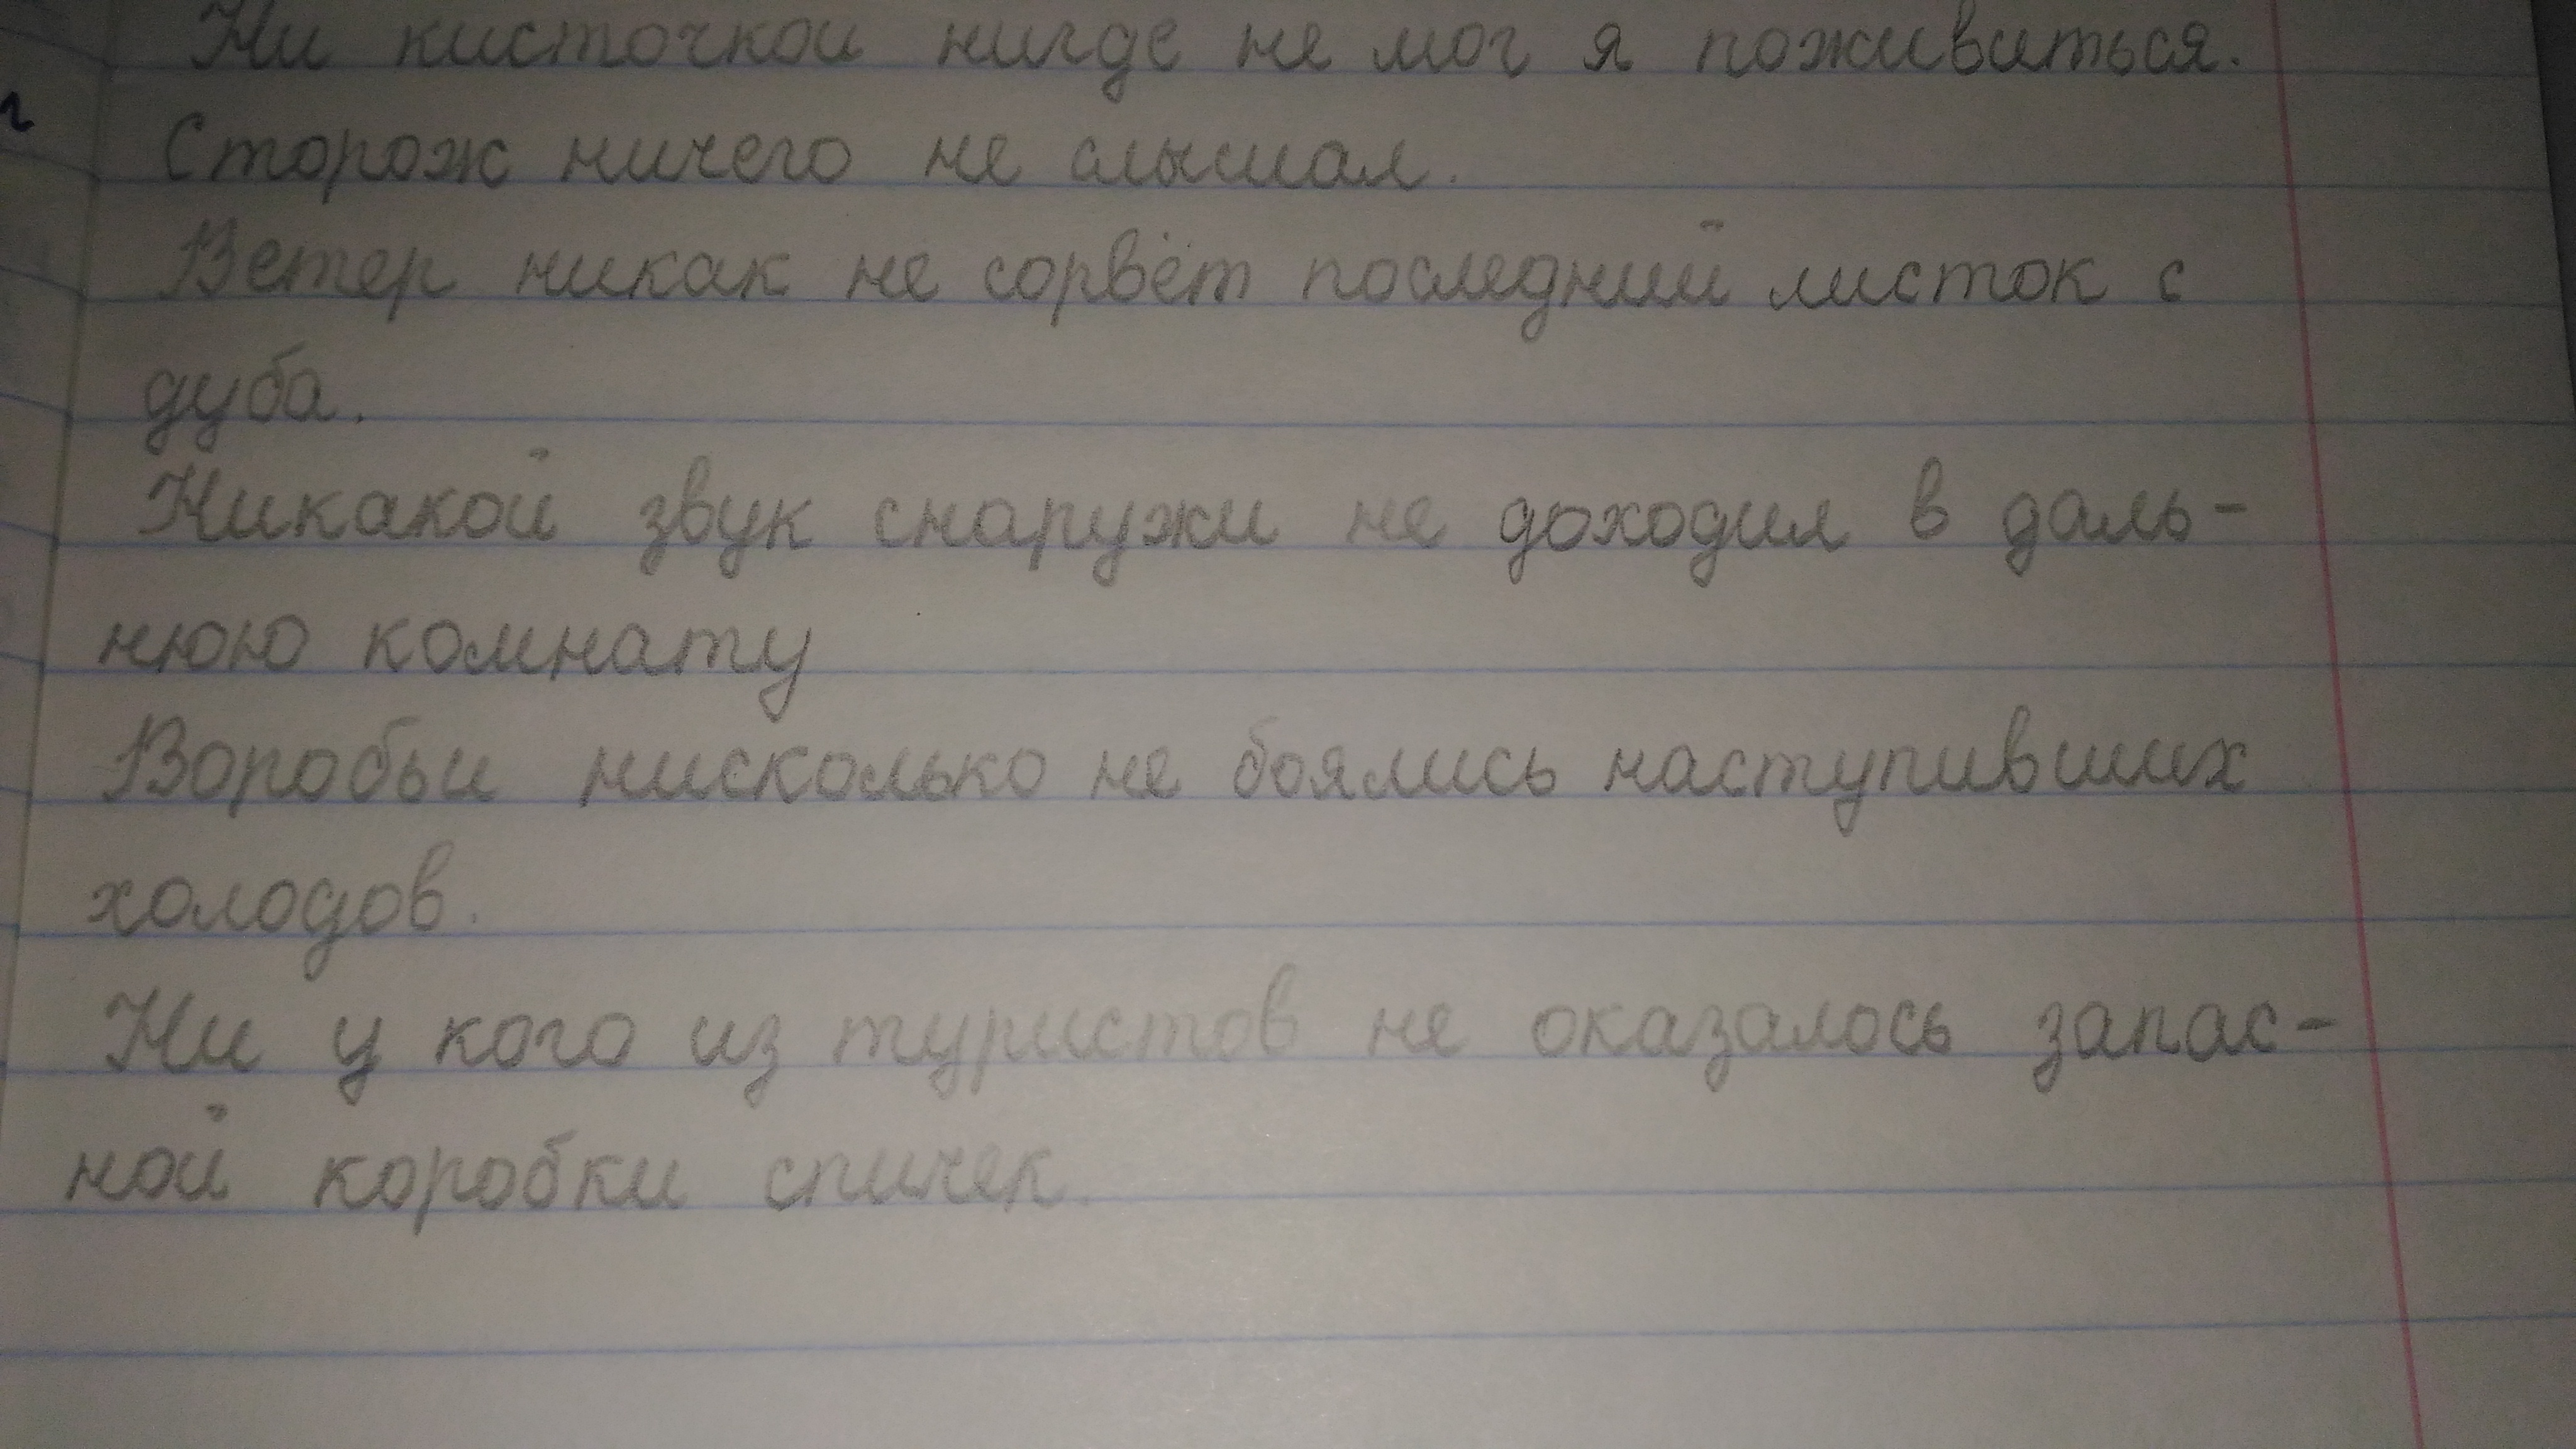 Ни кисточкой нигде не мог я поживиться.
Сторож ничего не слышал.
Ветер никак не сорвёт последний листок с
дуба.
Никакой звук снаружи не доходил в даль-
нюю комнату
Воробьи нисколько не боялись наступивших
холодов.
Ни у кого из туристов не оказалось запас-
ной коробки спичек.